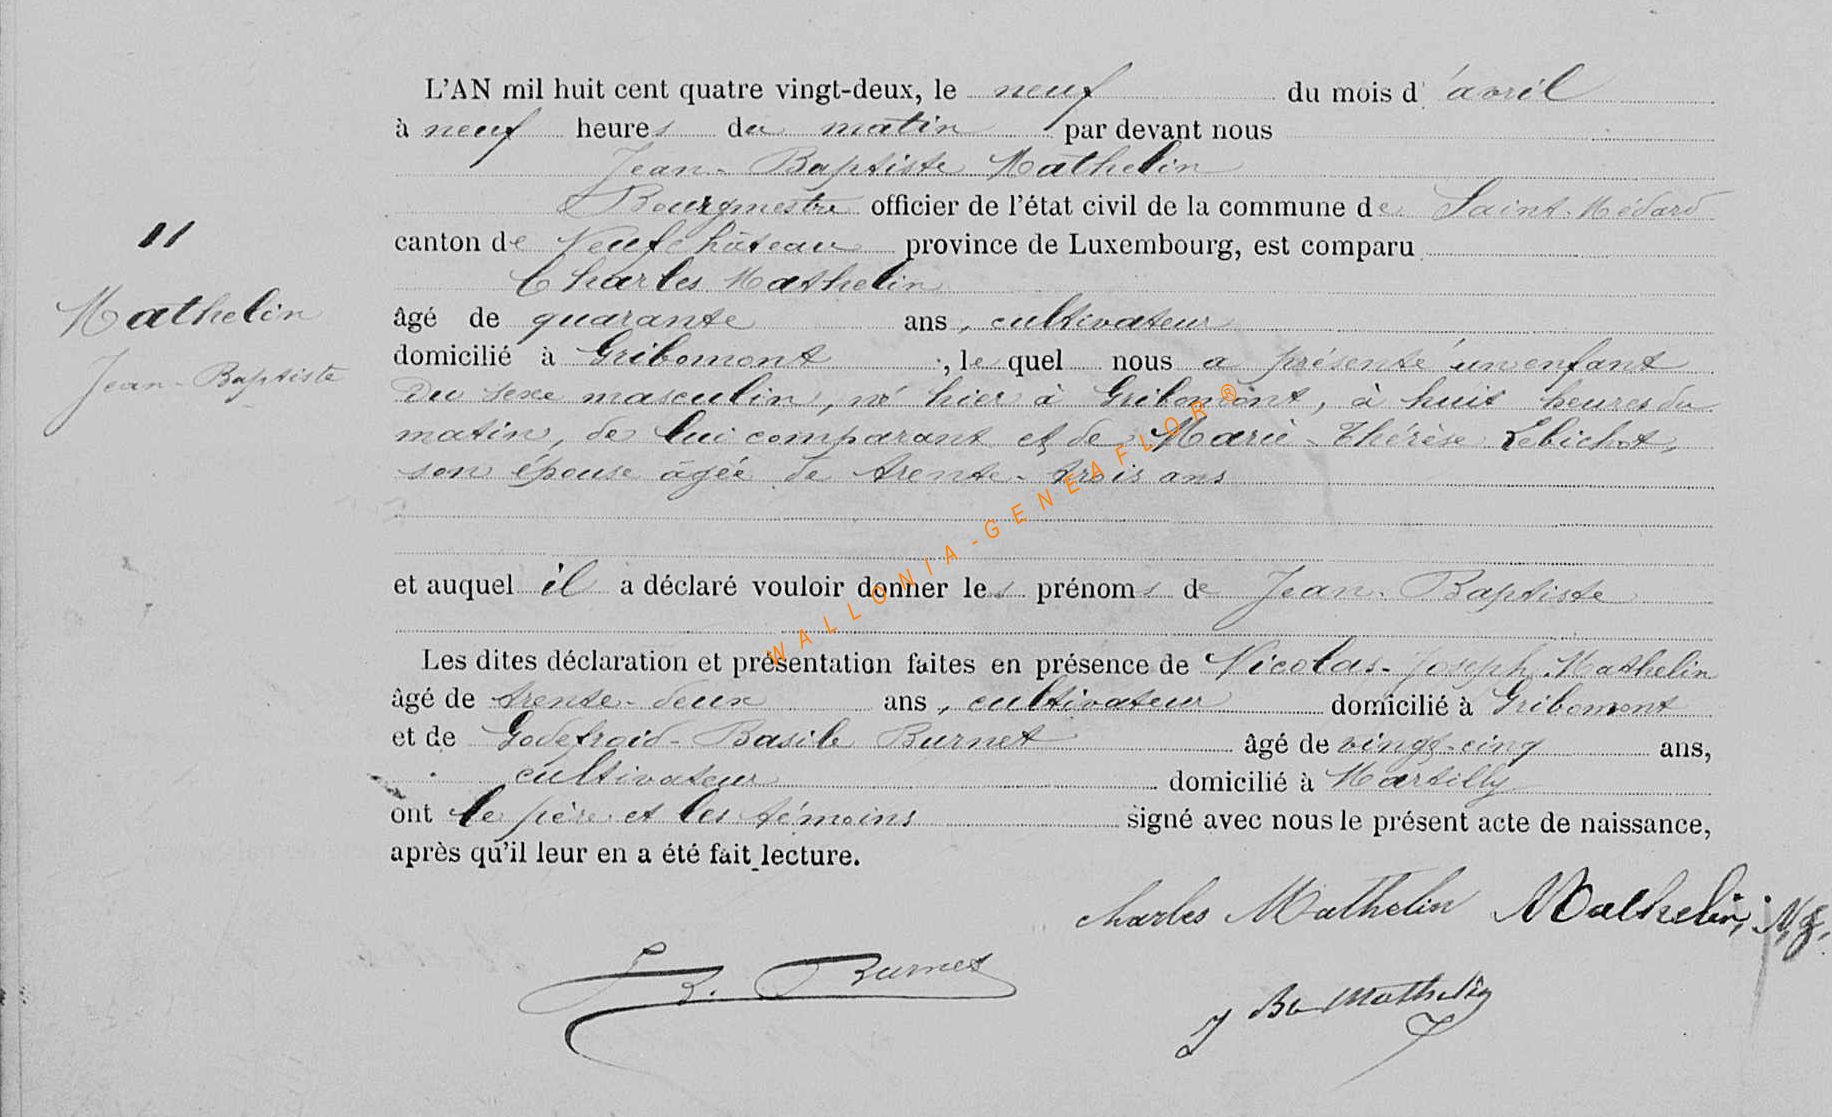 L'AN mil huit cent quatre vingt-deux, le neuf du mois d'avril
à neuf heures du matin par devant nous
Jean-Baptiste Mathelin
Bourgmestre officier de l'état civil de la commune de Saint-Médard
canton de Neufchâteau province de Luxembourg, est comparu
Charles Mathelin
11
Mathelin
Jean-Baptiste
âgé de quarante ans, cultivateur
domicilié à Gribomont, lequel nous a présenté un enfant
Du sexe masculin, né hier à Gribomont, à huit heures du
matin, de lui comparant et de Marie-Thérèse Lebichot,
son épouse âgée de trente-trois ans
et auquel il a déclaré vouloir donner les prénoms de Jean-Baptiste
Les dites déclaration et présentation faites en présence de Nicolas-Joseph Mathelin
âgé de trente-deux ans, cultivateur domicilié à Gribomont
et de Godefroid-Basile Burnet âgé de vingt-cinq ans,
cultivateur domicilié à Martilly
ont le père et les témoins signé avec nous le présent acte de naissance,
après qu'il leur en a été fait lecture.
Charles Mathelin Mathelin, N,J,
B. Burnet
J Bte Mathelin
WALLONIA-GENEAFLOR®